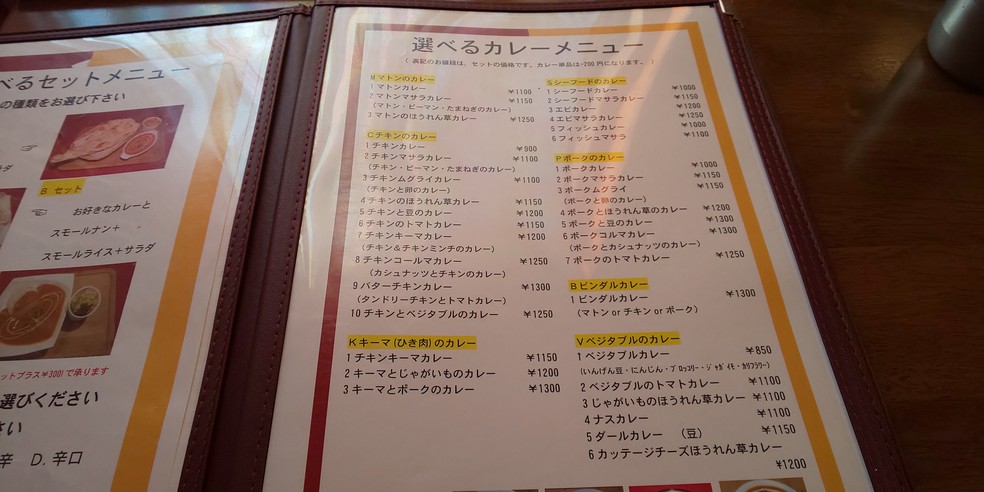 べるセットメニュー
の種類をお選び下さい
ラダ
B セット
お好きなカレーと
スモールナン＋
スモールライス＋サラダ
ットプラス¥300)で承ります
選びください
さい
辛 D. 辛口
選べるカレーメニュー
( 表記のお値段は、セットの価格です。カレー単品は-200円になります。 )
M マトンのカレー
1 マトンカレー ¥1100
2 マトンマサラカレー ¥1150
(マトン・ピーマン・たまねぎのカレー)
3 マトンのほうれん草カレー ¥1250
C チキンのカレー
1 チキンカレー ¥900
2 チキンマサラカレー ¥1100
(チキン・ピーマン・たまねぎのカレー)
3 チキンムグライカレー ¥1100
(チキンと卵のカレー)
4 チキンのほうれん草カレー ¥1150
5 チキンと豆のカレー ¥1200
6 チキンのトマトカレー ¥1150
7 チキンキーマカレー ¥1200
(チキン＆チキンミンチのカレー)
8 チキンコールマカレー ¥1250
(カシュナッツとチキンのカレー)
9 バターチキンカレー ¥1300
(タンドリーチキンとトマトカレー)
10 チキンとベジタブルのカレー ¥1250
K キーマ (ひき肉) のカレー
1 チキンキーマカレー ¥1150
2 キーマとじゃがいものカレー ¥1200
3 キーマとポークのカレー ¥1300
S シーフードのカレー
1 シーフードカレー ¥1000
2 シーフードマサラカレー ¥1150
3 エビカレー ¥1200
4 エビマサラカレー ¥1250
5 フィッシュカレー ¥1000
6 フィッシュマサラ ¥1100
P ポークのカレー
1 ポークカレー ¥1000
2 ポークマサラカレー ¥1150
3 ポークムグライ ¥1150
(ポークと卵のカレー)
4 ポークとほうれん草のカレー ¥1200
5 ポークと豆のカレー ¥1300
6 ポークコルマカレー ¥1300
(ポークとカシュナッツのカレー)
7 ポークのトマトカレー ¥1250
B ビンダルカレー
1 ビンダルカレー ¥1300
(マトン or チキン or ポーク)
V ベジタブルのカレー
1 ベジタブルカレー ¥850
(いんげん豆・にんじん・ブロッコリー・ジャガイモ・カリフラワー)
2 ベジタブルのトマトカレー ¥1100
3 じゃがいものほうれん草カレー ¥1100
4 ナスカレー ¥1100
5 ダールカレー （豆） ¥1150
6 カッテージチーズほうれん草カレー
¥1200